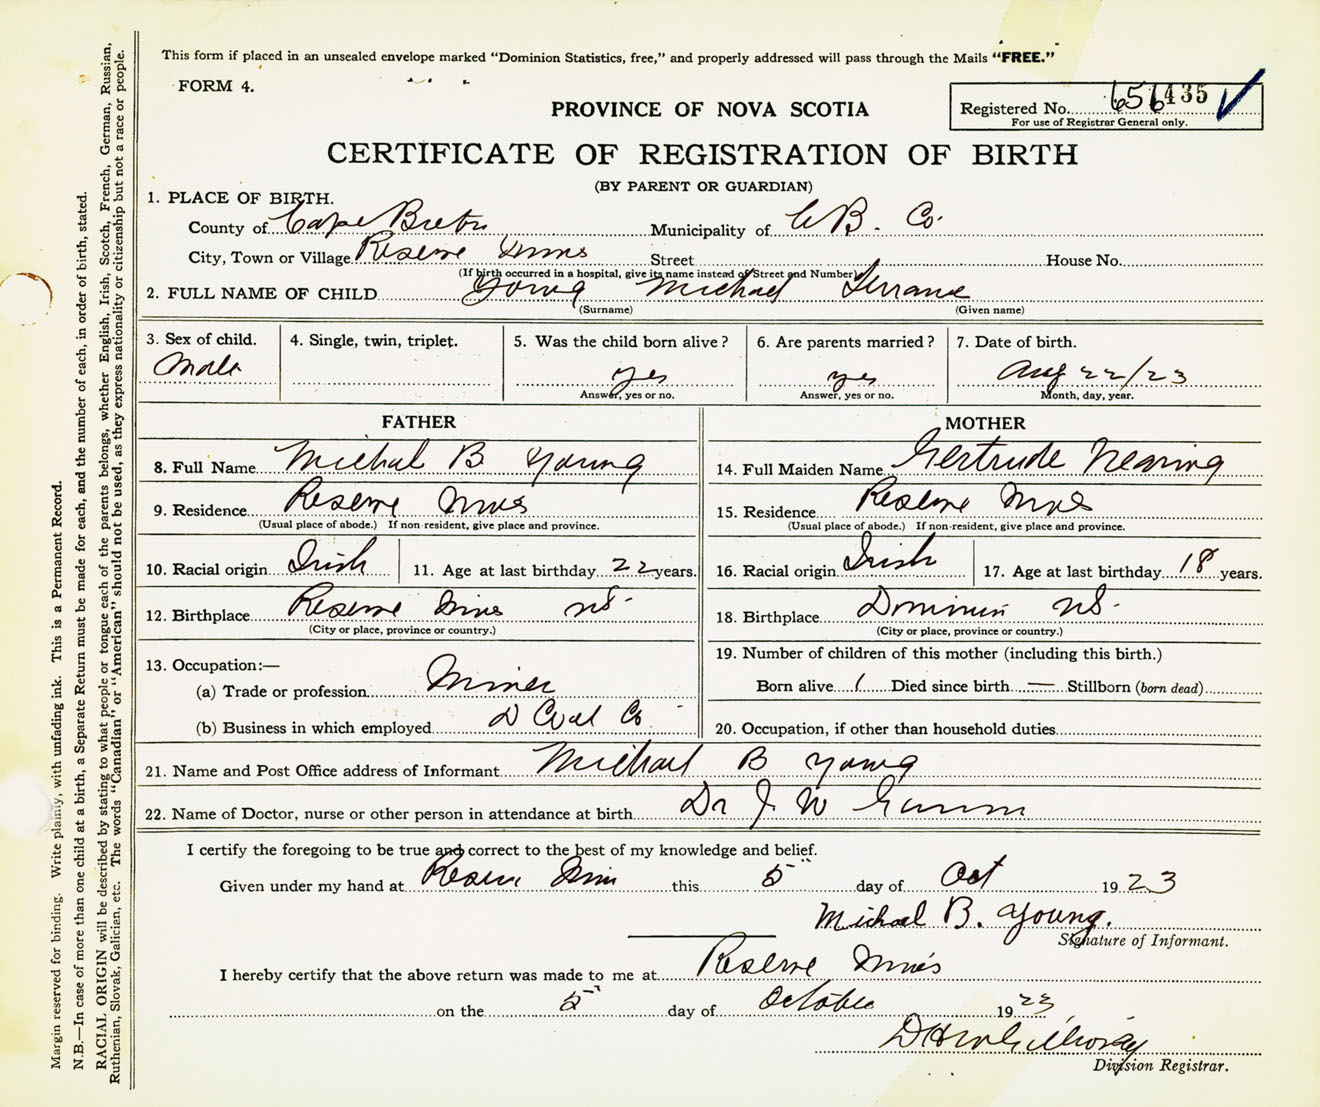 This form if placed in an unsealed envelope marked “Dominion Statistics, free,” and properly addressed will pass through the Mails “FREE.”
FORM 4.
PROVINCE OF NOVA SCOTIA
Registered No. 656435
For use of Registrar General only.
CERTIFICATE OF REGISTRATION OF BIRTH
(BY PARENT OR GUARDIAN)
1. PLACE OF BIRTH.
County of Cape Breton Municipality of C B. Co
City, Town or Village Reserve Mines Street House No.
(If birth occurred in a hospital, give its name instead of Street and Number)
2. FULL NAME OF CHILD Young Michael
(Surname) (Given name)
3. Sex of child. 4. Single, twin, triplet. 5. Was the child born alive? 6. Are parents married? 7. Date of birth.
Male yes yes Aug 22/23
Answer, yes or no. Answer, yes or no. Month, day, year.
FATHER MOTHER
8. Full Name Michal B Young 14. Full Maiden Name Gertrude Nearing
9. Residence Reserve Mines 15. Residence Reserve Mines
(Usual place of abode.) If non-resident, give place and province. (Usual place of abode.) If non-resident, give place and province.
10. Racial origin Irish 11. Age at last birthday 22 years. 16. Racial origin Irish 17. Age at last birthday 18 years.
12. Birthplace Reserve Mines NS. 18. Birthplace Dominion NS.
(City or place, province or country.) (City or place, province or country.)
13. Occupation:— 19. Number of children of this mother (including this birth.)
(a) Trade or profession Miner Born alive 1 Died since birth — Stillborn (born dead)
(b) Business in which employed D Coal Co 20. Occupation, if other than household duties
21. Name and Post Office address of Informant Michael B Young
22. Name of Doctor, nurse or other person in attendance at birth Dr J W
I certify the foregoing to be true and correct to the best of my knowledge and belief.
Given under my hand at Reserve Mines this 5 day of Oct 1923
Michael B. Young.
Signature of Informant.
I hereby certify that the above return was made to me at Reserve Mines
on the 5 day of October 1923
Division Registrar.
Margin reserved for binding. Write plainly, with unfading ink. This is a Permanent Record.
N.B.—In case of more than one child at a birth, a Separate Return must be made for each, and the number of each, in order of birth, stated.
RACIAL ORIGIN will be described by stating to what people or tongue each of the parents belongs, whether English, Irish, Scotch, French, German, Russian,
Ruthenian, Slovak, Galician, etc. The words “Canadian” or “American” should not be used, as they express nationality or citizenship but not a race or people.